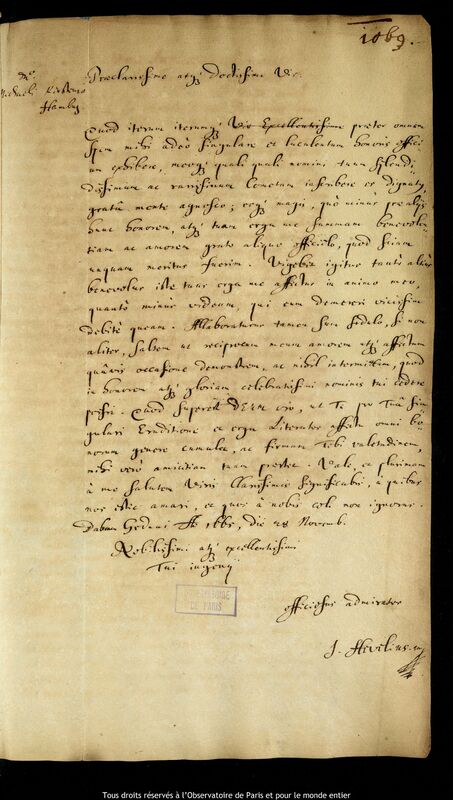 1069.
Dno.
Michaeli Kirstenio
Hamburg
Praeclarissime atq; Doctissime Vir.
Quod iterum iterumq; Vir Excellentissime praeter omnem
spem mihi adeo singulare et luculentum honoris officium
exhibere, meoq; quali quali nomini tuum splendi-
dissimum ac rarissimum Cometam inscribere es dignatus,
gratâ mente agnosco; eoq; magis, quò minus
hunc honorem, atq; tuam erga me summam benevolen-
tiam ac amorem grato aliquo officiolo, quod sciam
unquam meritus fuerim. Vigebit igitur tantò altius
benevolus iste tuus erga me affectus in animo meo,
quantò minùs videam, qui eum demereri vicissim
debitè queam. Allaboraturus tamen sum sedulo, si non
aliter, saltem ut reciprocum meum amorem atq; affectum
quâvis occasione demonstrem, ac nihil intermittam, quod
in honorem atq; gloriam celebratissimi nominis tui cedere
possit. Quod superest DEUM oro, ut Te pro Tuâ sin-
gulari Eruditione et erga Literatos affectu omni bo-
norum genere cumulet, ac firmam Tibi valetudinem,
mihi verò amicitiam tuam praestet. Vale, et plurimam
à me salutem Viris Clarissimis significabis, à quibus
nos istic amari, et quos à nobis coli non ignoras.
Dabam Gedani A 1665, die 28 Novemb.
Nobilissimi atq; excellentissimi
Tui ingenij
officiosus admirator
J. Hevelius mp
OBSERVATOIRE
DE PARIS
Tous droits réservés à l'Observatoire de Paris et pour le monde entier